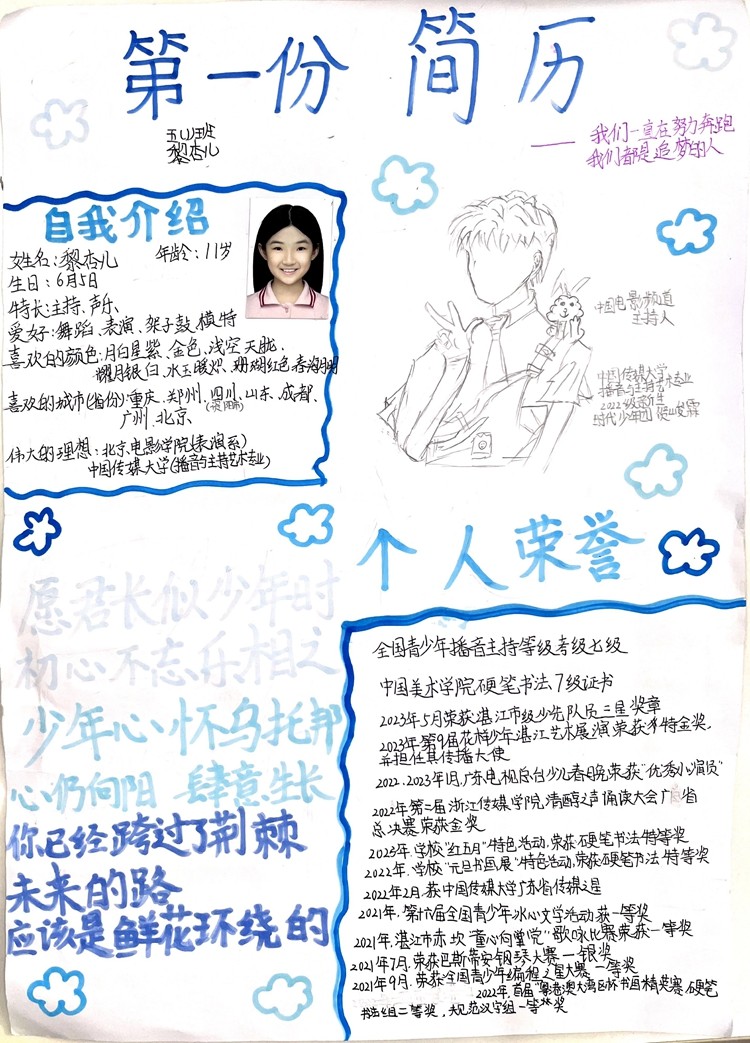 第一份 简历
五(1)班
黎杏儿
—— 我们一直在努力奔跑
我们都是追梦的人
自我介绍
姓名:黎杏儿 年龄:11岁
生日:6月5日
特长:主持、声乐
爱好:舞蹈、表演、架子鼓、模特
喜欢的颜色:月白星紫、金色、浅空天胧、
耀月银白、水玉暖
珊瑚红色、春海月明
喜欢的城市(省份):重庆、郑州、四川、山东、成都、
广州、北京、
伟大的理想:北京电影学院(表演系)
中国传媒大学(播音与主持艺术专业)
中国电影频道
主持人
中国传媒大学
播音与主持艺术专业
2022级新生
时代少年团
个人荣誉
全国青少年播音主持等级考级七级
中国美术学院硬笔书法7级证书
2023年5月荣获湛江市级少先队员三星奖章
2023年第9届花样少年湛江艺术展演荣获多特金奖,
并担任其传播大使
2022、2023年1月,广东电视总台少儿春晚荣获“优秀小演员”
2022年第二届浙江传媒学院,清醇之声诵读大会广 省
总决赛荣获金奖
2023年,学校“红五月”特色活动,荣获硬笔书法特等奖
2022年,学校“元旦书画展”特色活动,荣获硬笔书法特等奖
2022年2月,获中国传媒大学广东省传媒之星
2021年,第十六届全国青少年冰心文学活动获一等奖
2021年,湛江市赤坎“童心向党”歌咏比赛荣获一等奖
2021年7月,荣获巴斯蒂安钢琴大赛一银奖
2021年9月,荣获全国青少年编程之星大赛一等奖
2022年,首届“粤港澳大湾区杯书画精英赛,硬笔
书法组二等奖,规范汉字组一等奖
愿君长似少年时
初心不忘乐相之
少年心怀乌托邦
心仍向阳 肆意生长
你已经跨过了荆棘
未来的路
应该是鲜花环绕的